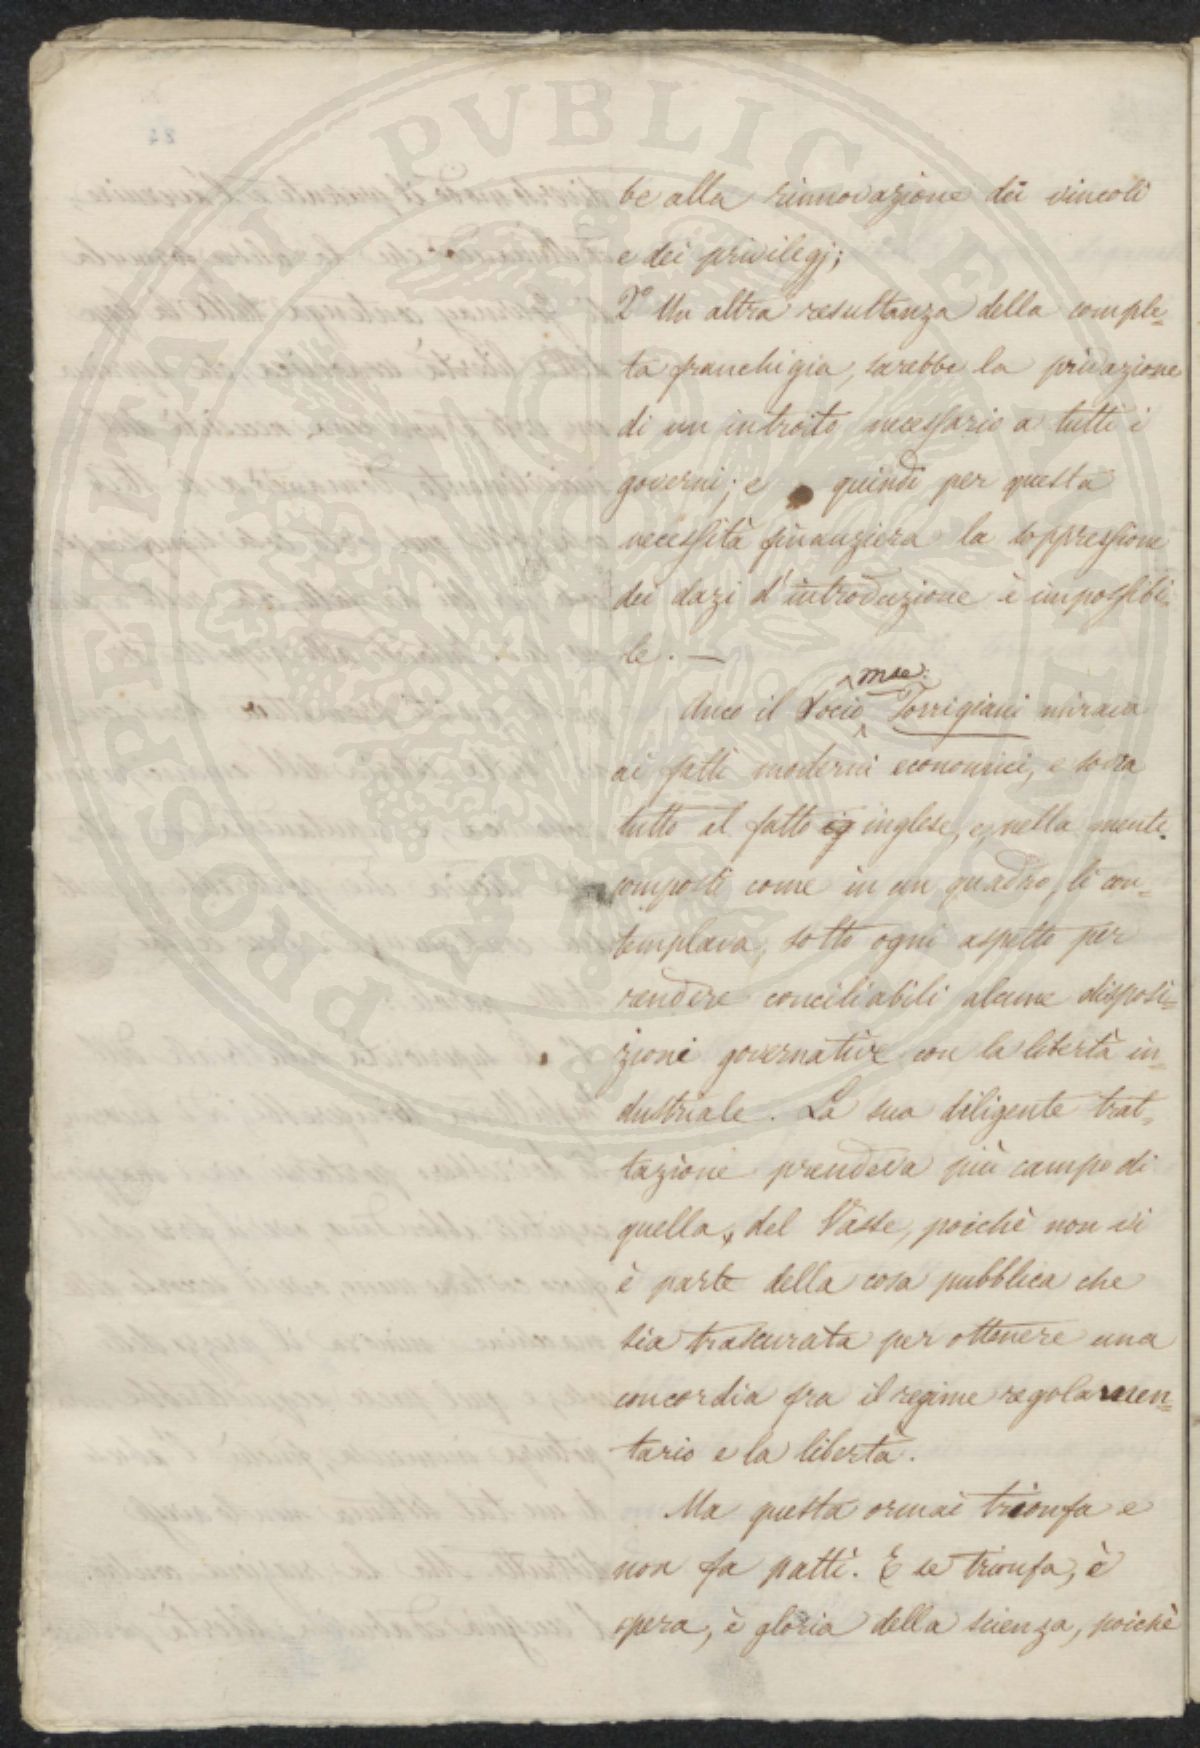 be alla rinnovazione dei vincoli
e dei privilegj;
2° Un altra resultanza della comple-
ta franchigia, sarebbe la privazione
di un introito necessario a tutti i
governi; e quindi per questa
necessità finanziera la soppressione
dei dazi d'introduzione è impossibi-
le. —
Anco il Socio mse. Torrigiani mirava
ai fatti moderni economici, e sovra
tutto al fatto inglese, e, nella mente
composti come in un quadro, li con-
templava, sotto ogni aspetto per
rendere conciliabili alcune disposi-
zioni governative con la libertà in-
dustriale. La sua diligente trat-
tazione prendeva più campo di
quella, del Passe, poichè non vi
è parte della cosa pubblica che
sia trascurata per ottenere una
concordia fra il regime regolamen-
tario e la libertà.
Ma questa ormai trionfa e
non fa patti. E se trionfa, è
opera, è gloria della scienza, poichè
PROSPERITATI PUBLICAE